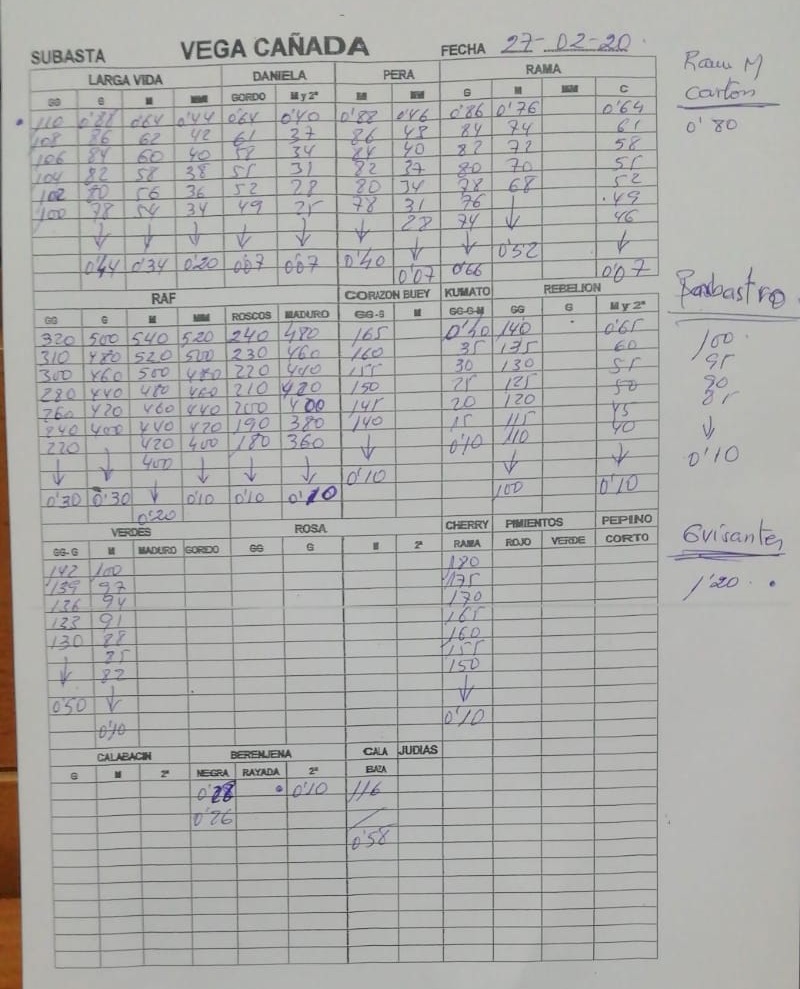 SUBASTA VEGA CAÑADA FECHA 27-02-20
LARGA VIDA DANIELA PERA RAMA
GG G M MM GORDO M y 2ª M MM G M MM C
110 0'88 0'64 0'44 0'64 0'40 0'88 0'46 0'86 0'76 0'64
108 86 62 42 61 37 86 43 84 74 61
106 84 60 40 58 34 84 40 82 72 58
104 82 58 38 55 31 82 37 80 70 55
102 80 56 36 52 28 80 34 78 68 52
100 78 54 34 49 25 78 31 76 ↓ 49
↓ ↓ ↓ ↓ ↓ ↓ 28 74 46
0'44 0'34 0'20 0'07 0'07 0'40 ↓ ↓ 0'52 ↓
0'07 0'66 0'07
RAF CORAZON BUEY KUMATO REBELION
GG G M MM ROSCOS MADURO GG-G M GG-G-M GG G M y 2ª
320 500 540 520 240 480 165 0'40 140 0'65
310 480 520 500 230 460 160 35 135 60
300 460 500 480 220 440 155 30 130 55
280 440 480 460 210 420 150 25 125 50
260 420 460 440 200 400 145 20 120 45
240 400 440 420 190 380 140 15 115 40
220 420 400 180 360 ↓ 0'10 110 ↓
↓ ↓ 400 ↓ ↓ ↓ 0'10 ↓
0'30 0'30 ↓ 0'10 0'10 0'10 100 0'10
0'20
VERDES ROSA CHERRY PIMIENTOS PEPINO
GG-G M MADURO GORDO GG G M 2ª RAMA ROJO VERDE CORTO
142 100 180
139 97 175
136 94 170
133 91 165
130 88 160
↓ 85 155
82 150
0'50 ↓ ↓
0'10 0'10
CALABACIN BERENJENA CALA BAZA JUDIAS
G M 2ª NEGRA RAYADA 2ª
0'28 0'10 116
0'26
0'58
Rama M
carton
0'80
Barbastro
100
95
90
85
↓
0'10
Guisantes
1'20